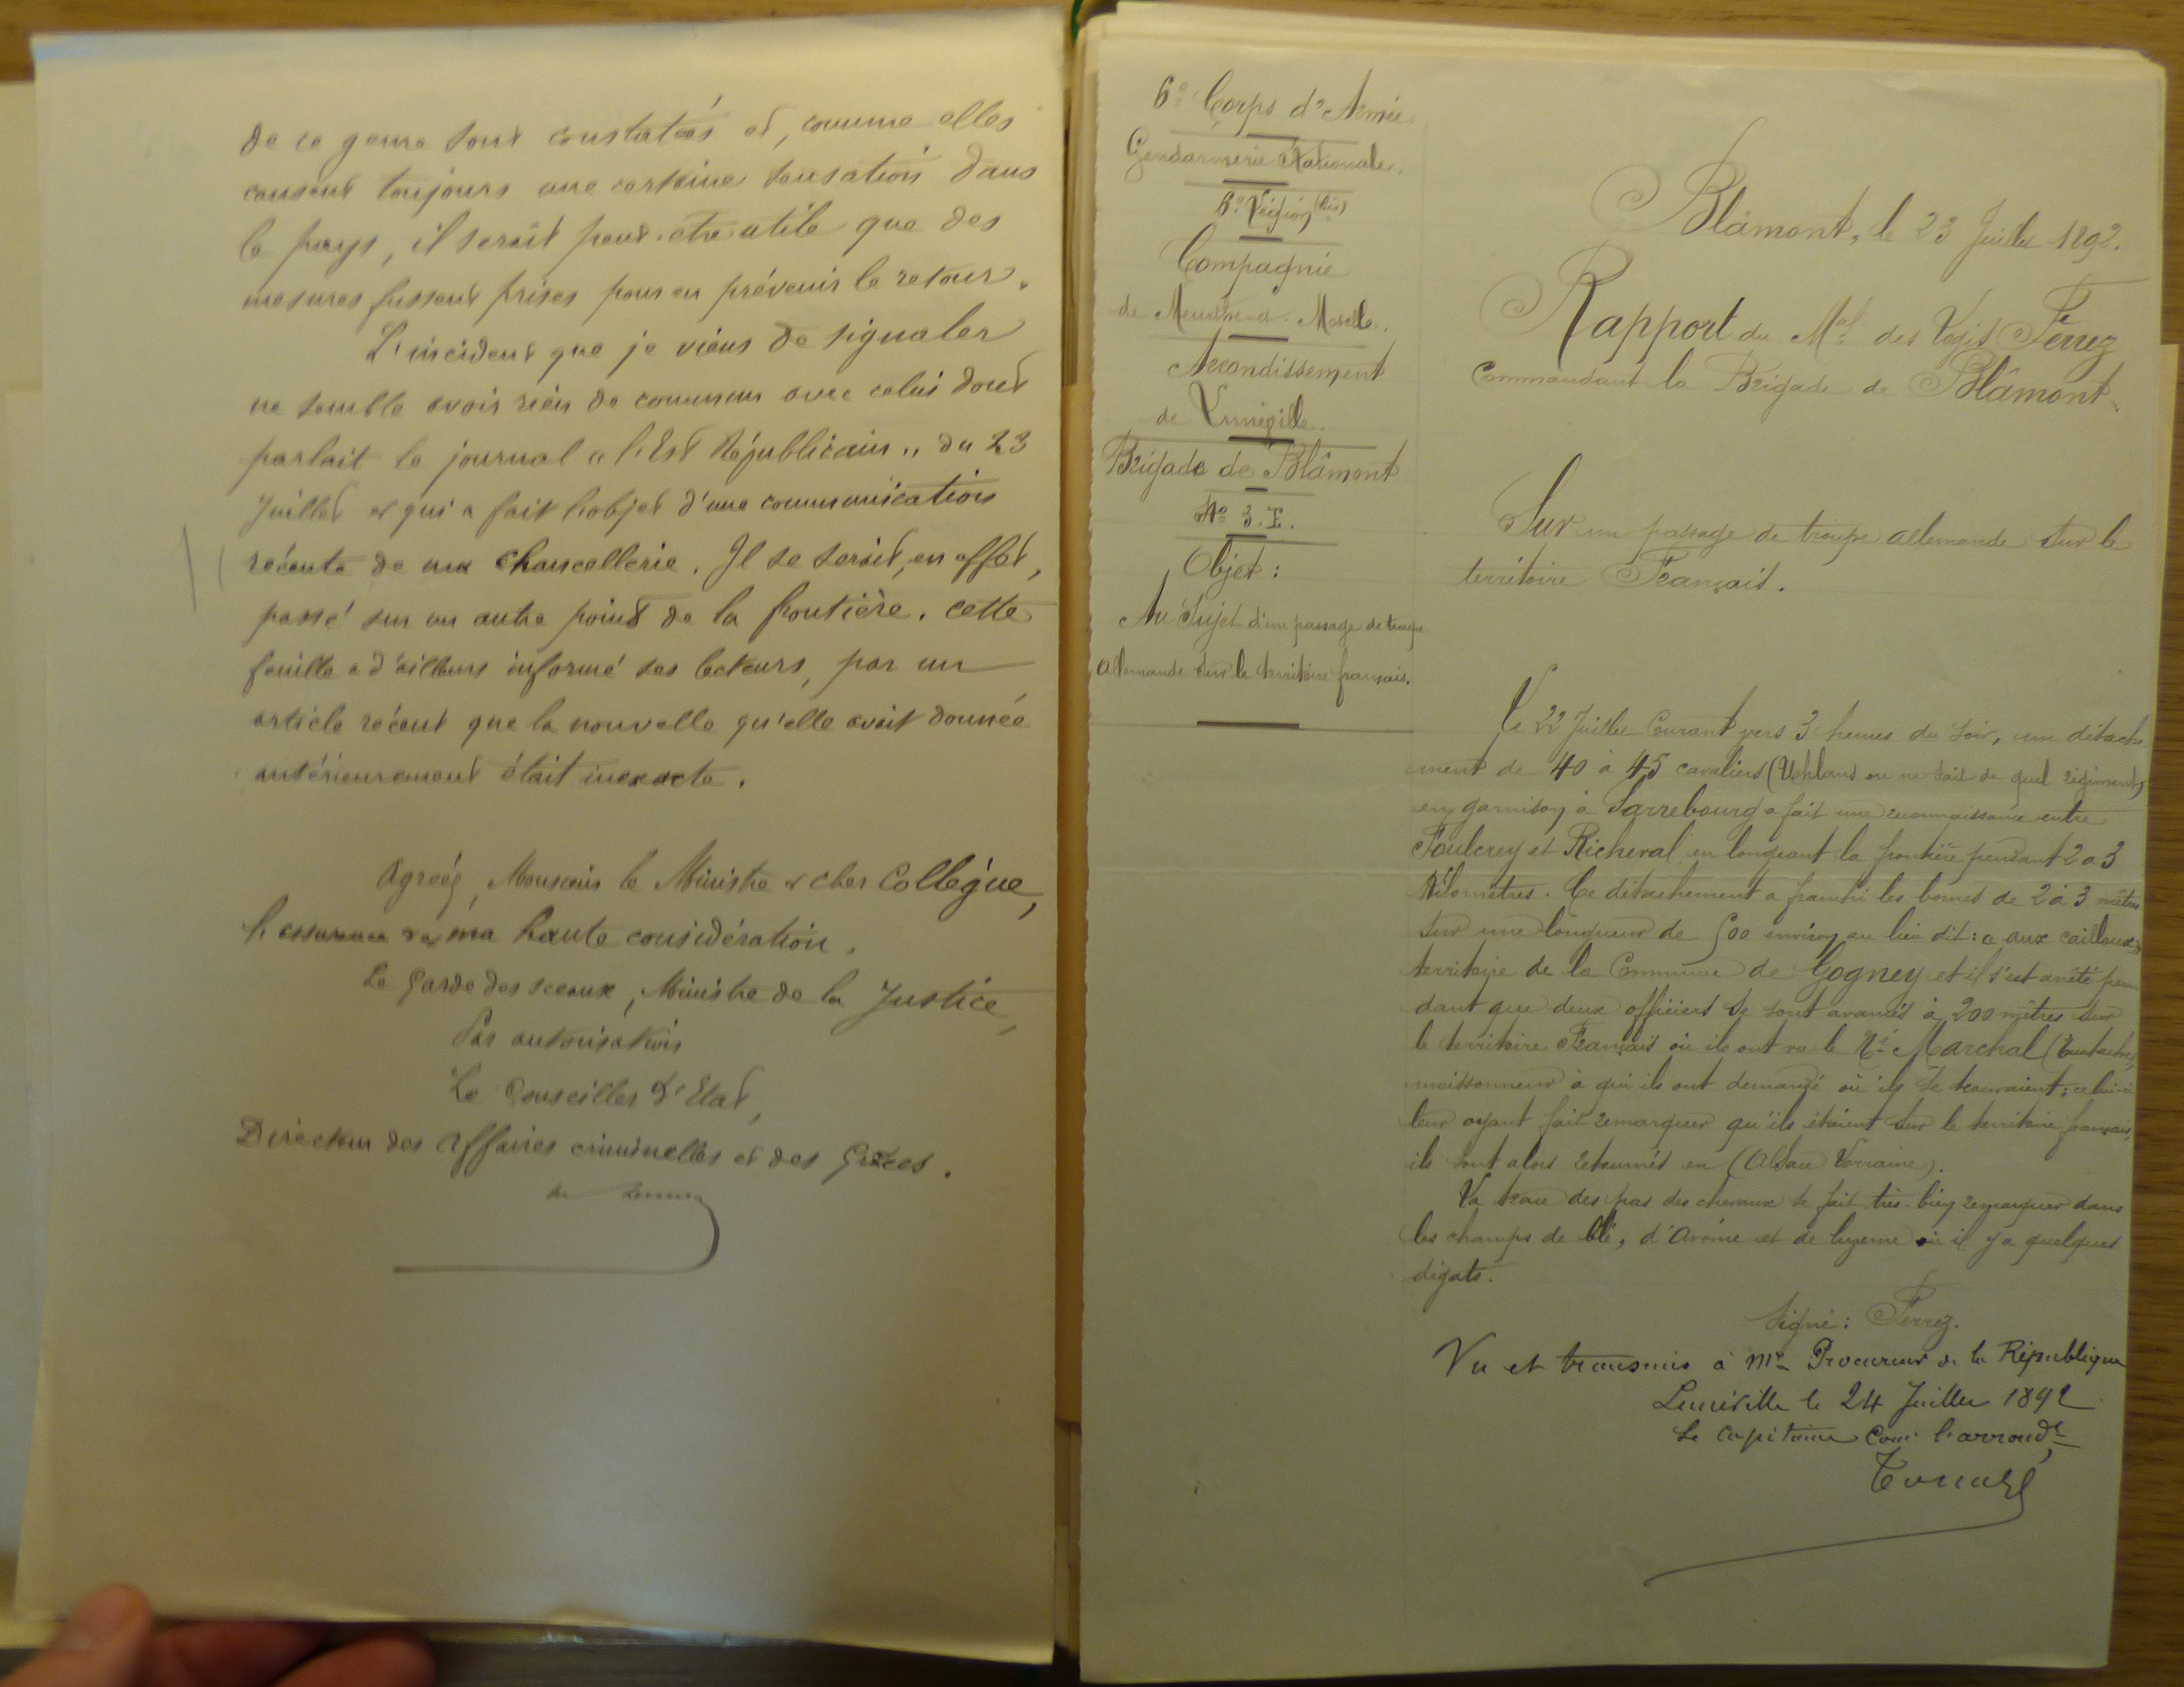 de ce genre sont constatées et, comme elles
causent toujours une certaine sensation dans
le pays, il serait peut-être utile que des
mesures fussent prises pour en prévenir le retour.
L'incident que je viens de signaler
ne semble avoir rien de commun avec celui dont
parlait le journal "l'Est Républicain" du 23
Juillet et qui a fait l'objet d'une communication
récente de ma chancellerie. Il se serait, en effet,
passé sur un autre point de la frontière. cette
feuille a d'ailleurs informé ses lecteurs, par un
article récent que la nouvelle qu'elle avait donnée
antérieurement était inexacte.
Agréez, Monsieur le Ministre et cher Collègue,
l'assurance de ma haute considération.
Le Garde des sceaux, Ministre de la Justice,
Par autorisation
Le Conseiller d'Etat,
Directeur des Affaires criminelles et des Grâces.
6e Corps d'Armée
Gendarmerie Nationale.
6e Légion (bis)
Compagnie
de Meurthe-et-Moselle.
Arrondissement
de Lunéville.
Brigade de Blâmont
No 3.E.
Objet :
Au Sujet d'un passage de troupe
allemande sur le territoire français.
Blâmont, le 23 Juillet 1892.
Rapport du Mal des Logis Ferrez
Commandant la Brigade de Blâmont.
Sur un passage de troupe allemande sur le
territoire Français.
Le 22 Juillet Courant vers 3 heures du soir, un détache
ment de 40 à 45 cavaliers (Uhlans on ne sait de quel régiment)
en garnison à Sarrebourg a fait une reconnaissance entre
Foulcrey et Richeval en longeant la frontière pendant 2 à 3
Kilomètres. Ce détachement a franchi les bornes de 2 à 3 mètres
sur une longueur de 500 environ au lieu dit : « aux cailloux »
territoire de la Commune de Gogney et il s'est arrêté pen
dant que deux officiers se sont avancés à 200 mètres sur
le territoire Français où ils ont vu le Né Marchal (Eustache)
moissonneur à qui ils ont demandé où ils se trouvaient ; celui-ci
leur ayant fait remarquer qu'ils étaient sur le territoire français,
ils sont alors retournés en (Alsace Lorraine).
La trace des pas des chevaux se fait très-bien remarquer dans
les champs de blé, d'avoine et de luzerne où il y a quelques
dégats.
Signé : Ferrez.
Vu et transmis à Mr Procureur de la République
Lunéville le 24 Juillet 1892
Le Capitaine Comt l'arrondt